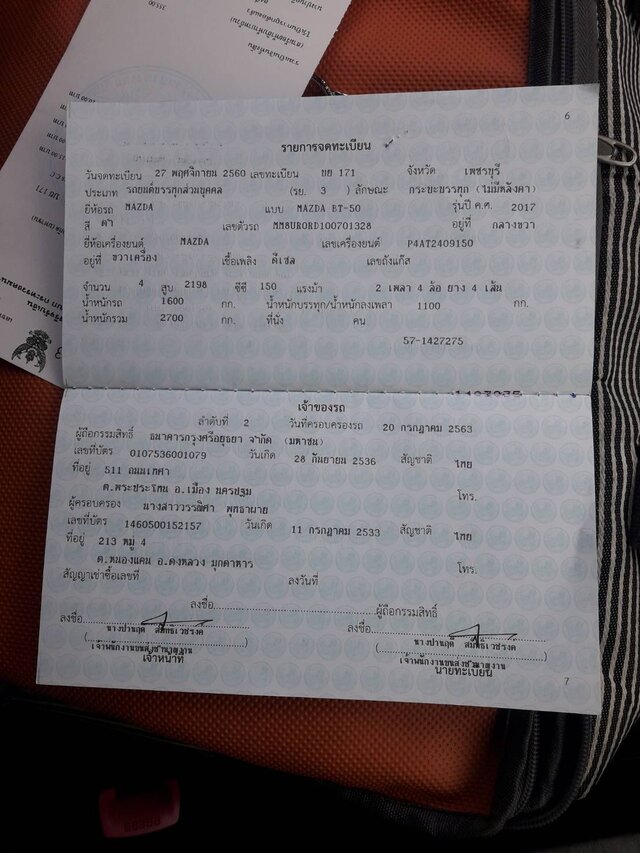 6
รายการจดทะเบียน
วันจดทะเบียน 27 พฤศจิกายน 2560 เลขทะเบียน ยย 171 จังหวัด เพชรบุรี
ประเภท รถยนต์บรรทุกส่วนบุคคล (รย. 3 ) ลักษณะ กระบะบรรทุก (ไม่มีหลังคา)
ยี่ห้อรถ MAZDA แบบ MAZDA BT-50 รุ่นปี ค.ศ. 2017
สี ดำ เลขตัวรถ MM8UR0RD100701328 อยู่ที่ กลางขวา
ยี่ห้อเครื่องยนต์ MAZDA เลขเครื่องยนต์ P4AT2409150
อยู่ที่ ขวาเครื่อง เชื้อเพลิง ดีเซล เลขถังแก๊ส
จำนวน 4 สูบ 2198 ซีซี 150 แรงม้า 2 เพลา 4 ล้อ ยาง 4 เส้น
น้ำหนักรถ 1600 กก. น้ำหนักบรรทุก/น้ำหนักลงเพลา 1100 กก.
น้ำหนักรวม 2700 กก. ที่นั่ง คน
57-1427275
เจ้าของรถ
ลำดับที่ 2 วันที่ครอบครองรถ 20 กรกฎาคม 2563
ผู้ถือกรรมสิทธิ์ ธนาคารกรุงศรีอยุธยา จำกัด (มหาชน)
เลขที่บัตร 0107536001079 วันเกิด 28 กันยายน 2536 สัญชาติ ไทย
ที่อยู่ 511 ถนนเทศา
ต.พระประโทน อ.เมือง นครปฐม โทร.
ผู้ครอบครอง นางสาววรรณิศา พุทธานาย
เลขที่บัตร 1460500152157 วันเกิด 11 กรกฎาคม 2533 สัญชาติ ไทย
ที่อยู่ 213 หมู่ 4
ต.หนองแคน อ.ดงหลวง มุกดาหาร โทร.
สัญญาเช่าซื้อเลขที่ ลงวันที่
ลงชื่อ ผู้ถือกรรมสิทธิ์
ลงชื่อ ลงชื่อ
เจ้าพนักงานขนส่งชำนาญงาน เจ้าพนักงานขนส่งชำนาญงาน
เจ้าหน้าที่ นายทะเบียน
7